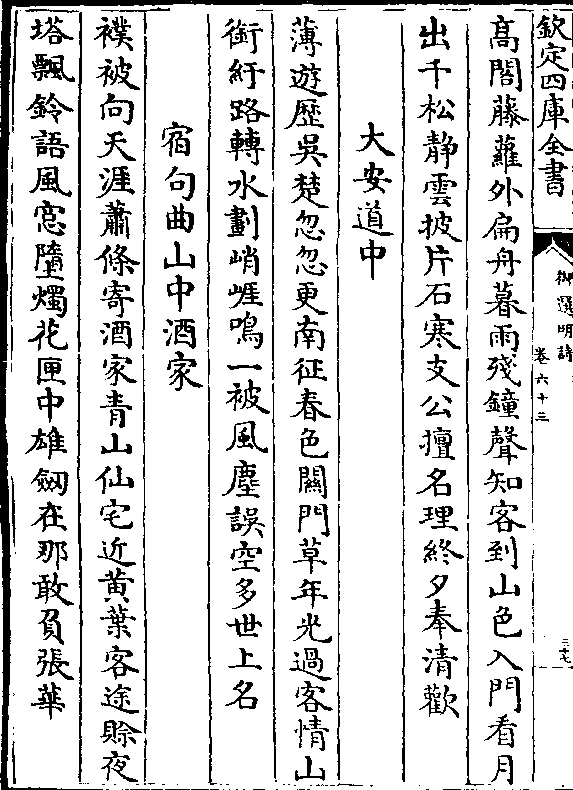 欽定四庫全書
御選明詩
卷六十三
三十七
高閣藤蘿外扁舟暮雨殘鐘聲知客到山色入門看月
出千松靜雲披片石寒支公擅名理終夕奉清歡
大安道中
薄遊歷吳楚忽忽更南征春色關門草年光過客情山
銜紆路轉水劃峭崕鳴一被風塵誤空多世上名
宿句曲山中酒家
襆被向天涯蕭條寄酒家青山仙宅近黃葉客途賒夜
塔飄鈴語風窓墮燭花匣中雄劒在那敢負張華